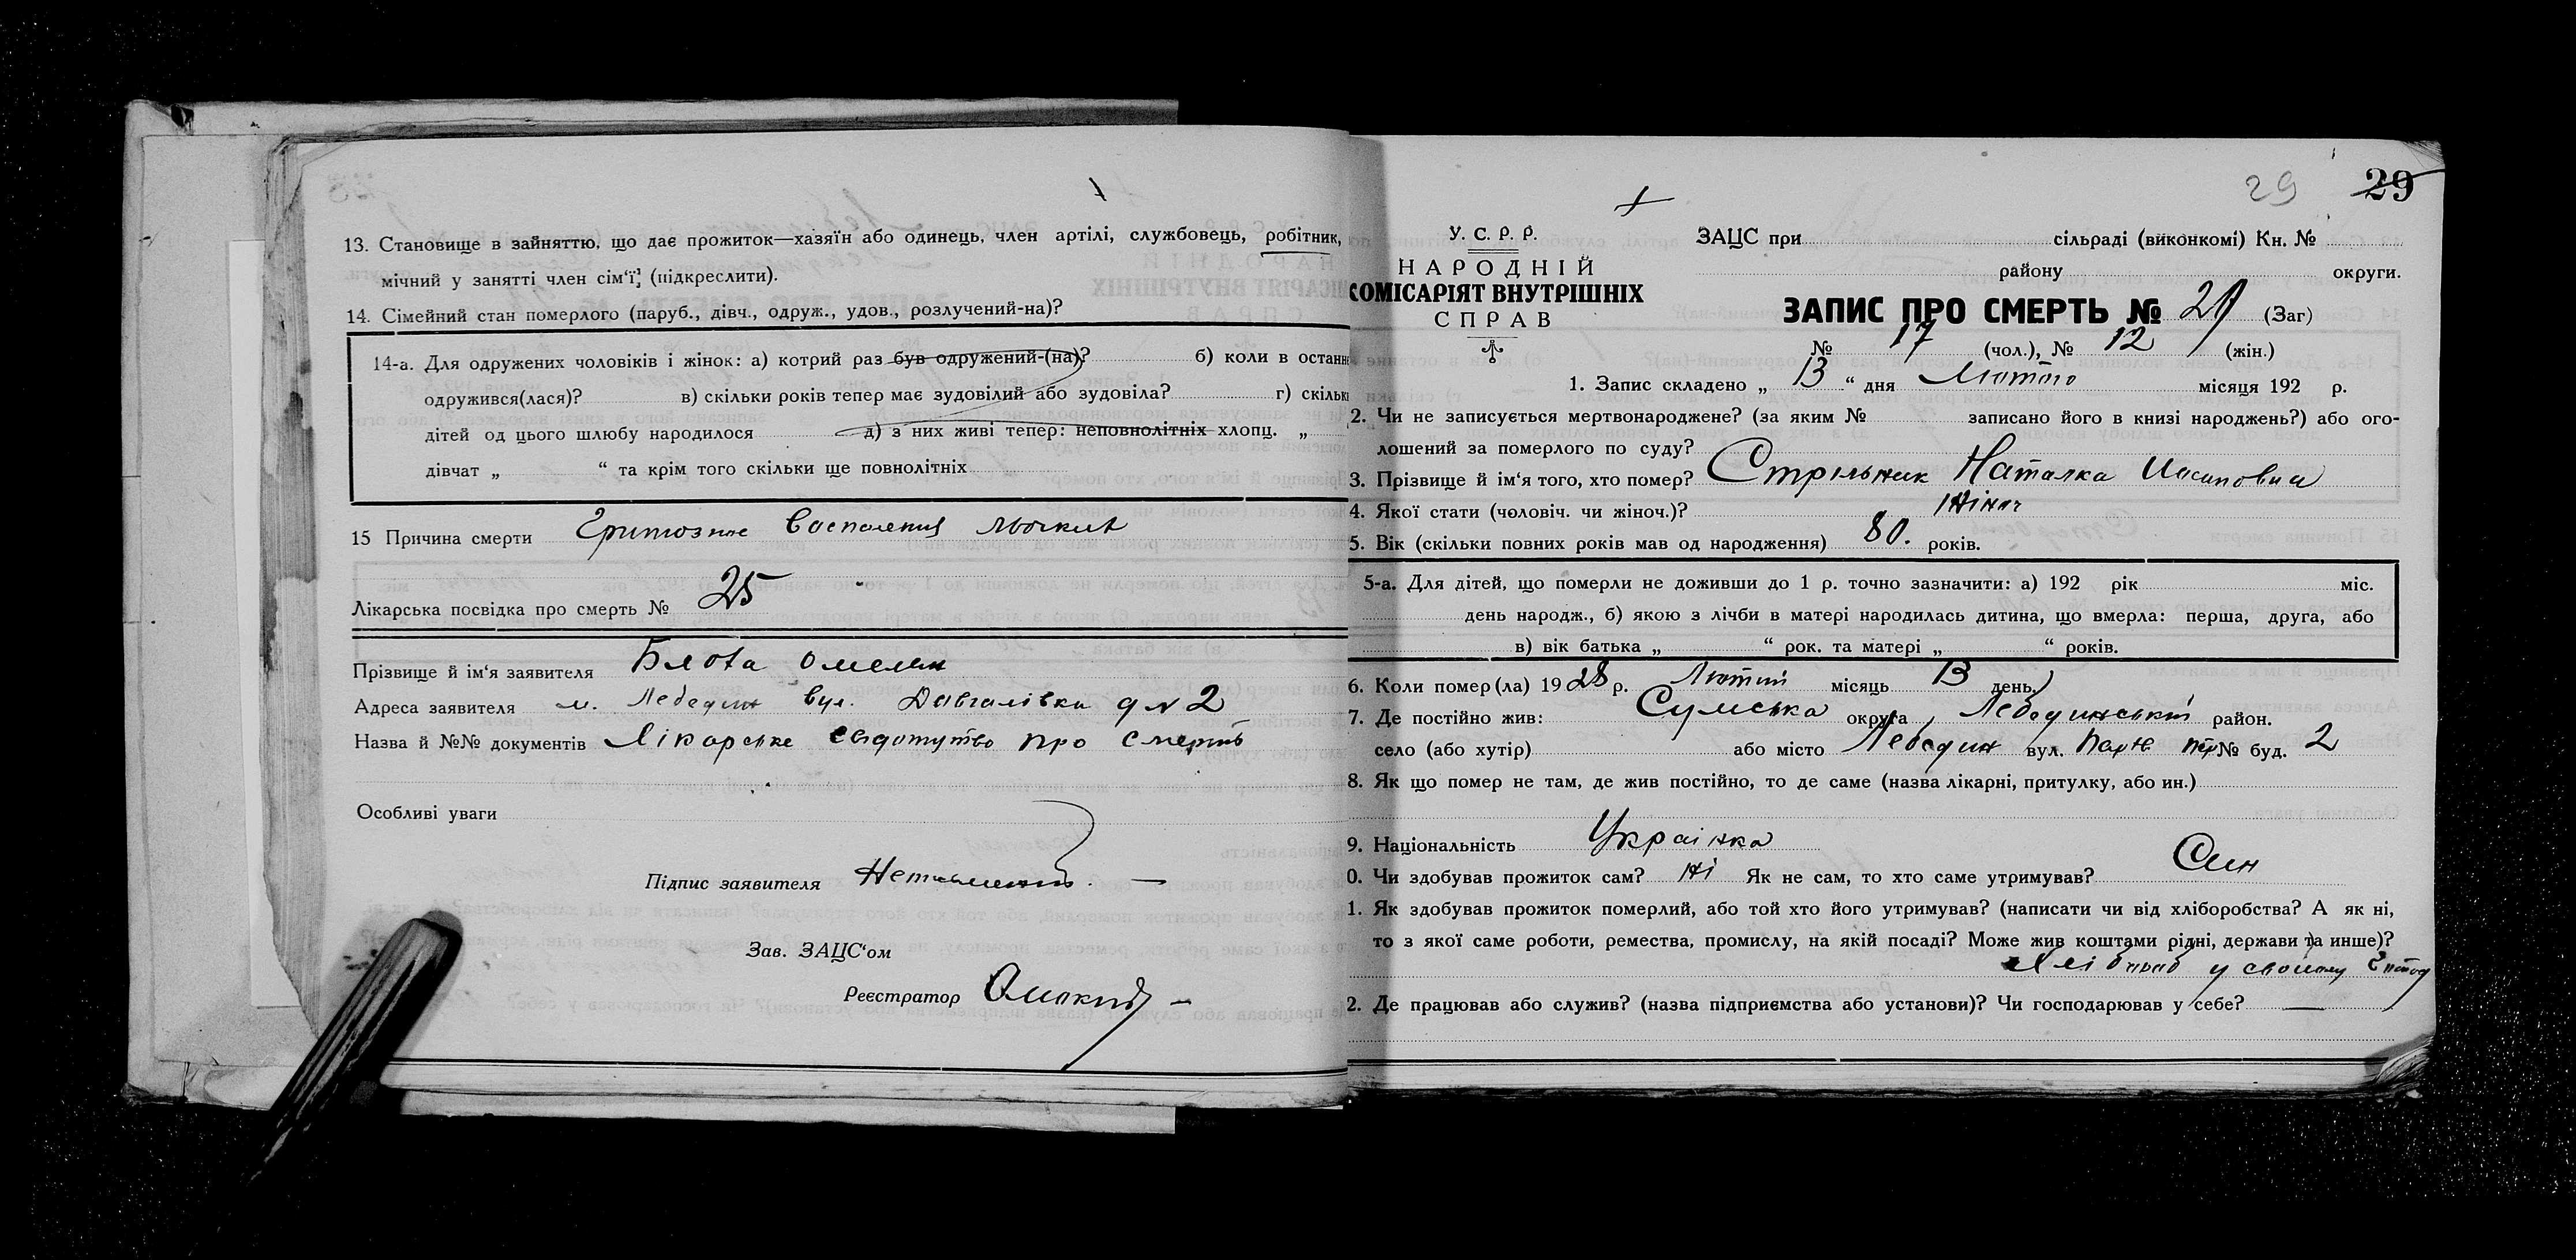 13. Становище в зайняттю, що дає прожиток—хазяїн або одинець, член артілі, службовець, робітник,
мічний у занятті член сім'ї, (підкреслити).
14. Сімейний стан померлого (паруб., дівч., одруж., удов., розлучений-на)?
14-а. Для одружених чоловіків і жінок: а) котрий раз був одружений-(на)? б) коли в останнє
одружився(лася)? в) скільки років тепер має зудовілий або зудовіла? г) скільки
дітей од цього шлюбу народилося д) з них живі тепер: неповнолітніх хлопц. „
дівчат „ “ та крім того скільки ще повнолітніх
15 Причина смерти
Лікарська посвідка про смерть № 25
Прізвище й ім'я заявителя Блоха Омелян
Адреса заявителя м. Лебедин вул. Довгалівка д № 2
Назва й №№ документів Лікарське свідотутво про смерть
Особливі уваги
Підпис заявителя Неписьмений. —
Зав. ЗАЦС'ом
Реєстратор
29 29
У. С. Р. Р.
НАРОДНІЙ
КОМІСАРІЯТ ВНУТРІШНІХ
СПРАВ
ЗАЦС при сільраді (виконкомі) Кн. №
району округи.
ЗАПИС ПРО СМЕРТЬ № 29 (Заг)
№ 17 (чол.), № 12 (жін.)
1. Запис складено „ 13 “ дня Лютого місяця 192 р.
2. Чи не записується мертвонароджене? (за яким № записано його в книзі народжень?) або ого-
лошений за померлого по суду?
3. Прізвище й ім'я того, хто помер? Стрільник Наталка Иасиповна
4. Якої стати (чоловіч. чи жіноч.)? Жіноч
5. Вік (скільки повних років мав од народження) 80. років.
5-а. Для дітей, що померли не доживши до 1 р. точно зазначити: а) 192 рік міс.
день народж., б) якою з лічби в матері народилась дитина, що вмерла: перша, друга, або
в) вік батька „ “ рок. та матері „ “ років.
6. Коли помер(ла) 1928 р. Лютий місяць 13 день.
7. Де постійно жив: Сумська округа Лебединський район.
село (або хутір) або місто Лебедин вул. № буд. 2
8. Як що помер не там, де жив постійно, то де саме (назва лікарні, притулку, або ин.)
9. Національність Українка
0. Чи здобував прожиток сам? Ні Як не сам, то хто саме утримував? Син
1. Як здобував прожиток померлий, або той хто його утримував? (написати чи від хліборобства? А як ні,
то з якої саме роботи, ремества, промислу, на якій посаді? Може жив коштами рідні, держави та инше)?
у свойому
2. Де працював або служив? (назва підприємства або установи)? Чи господарював у себе? —